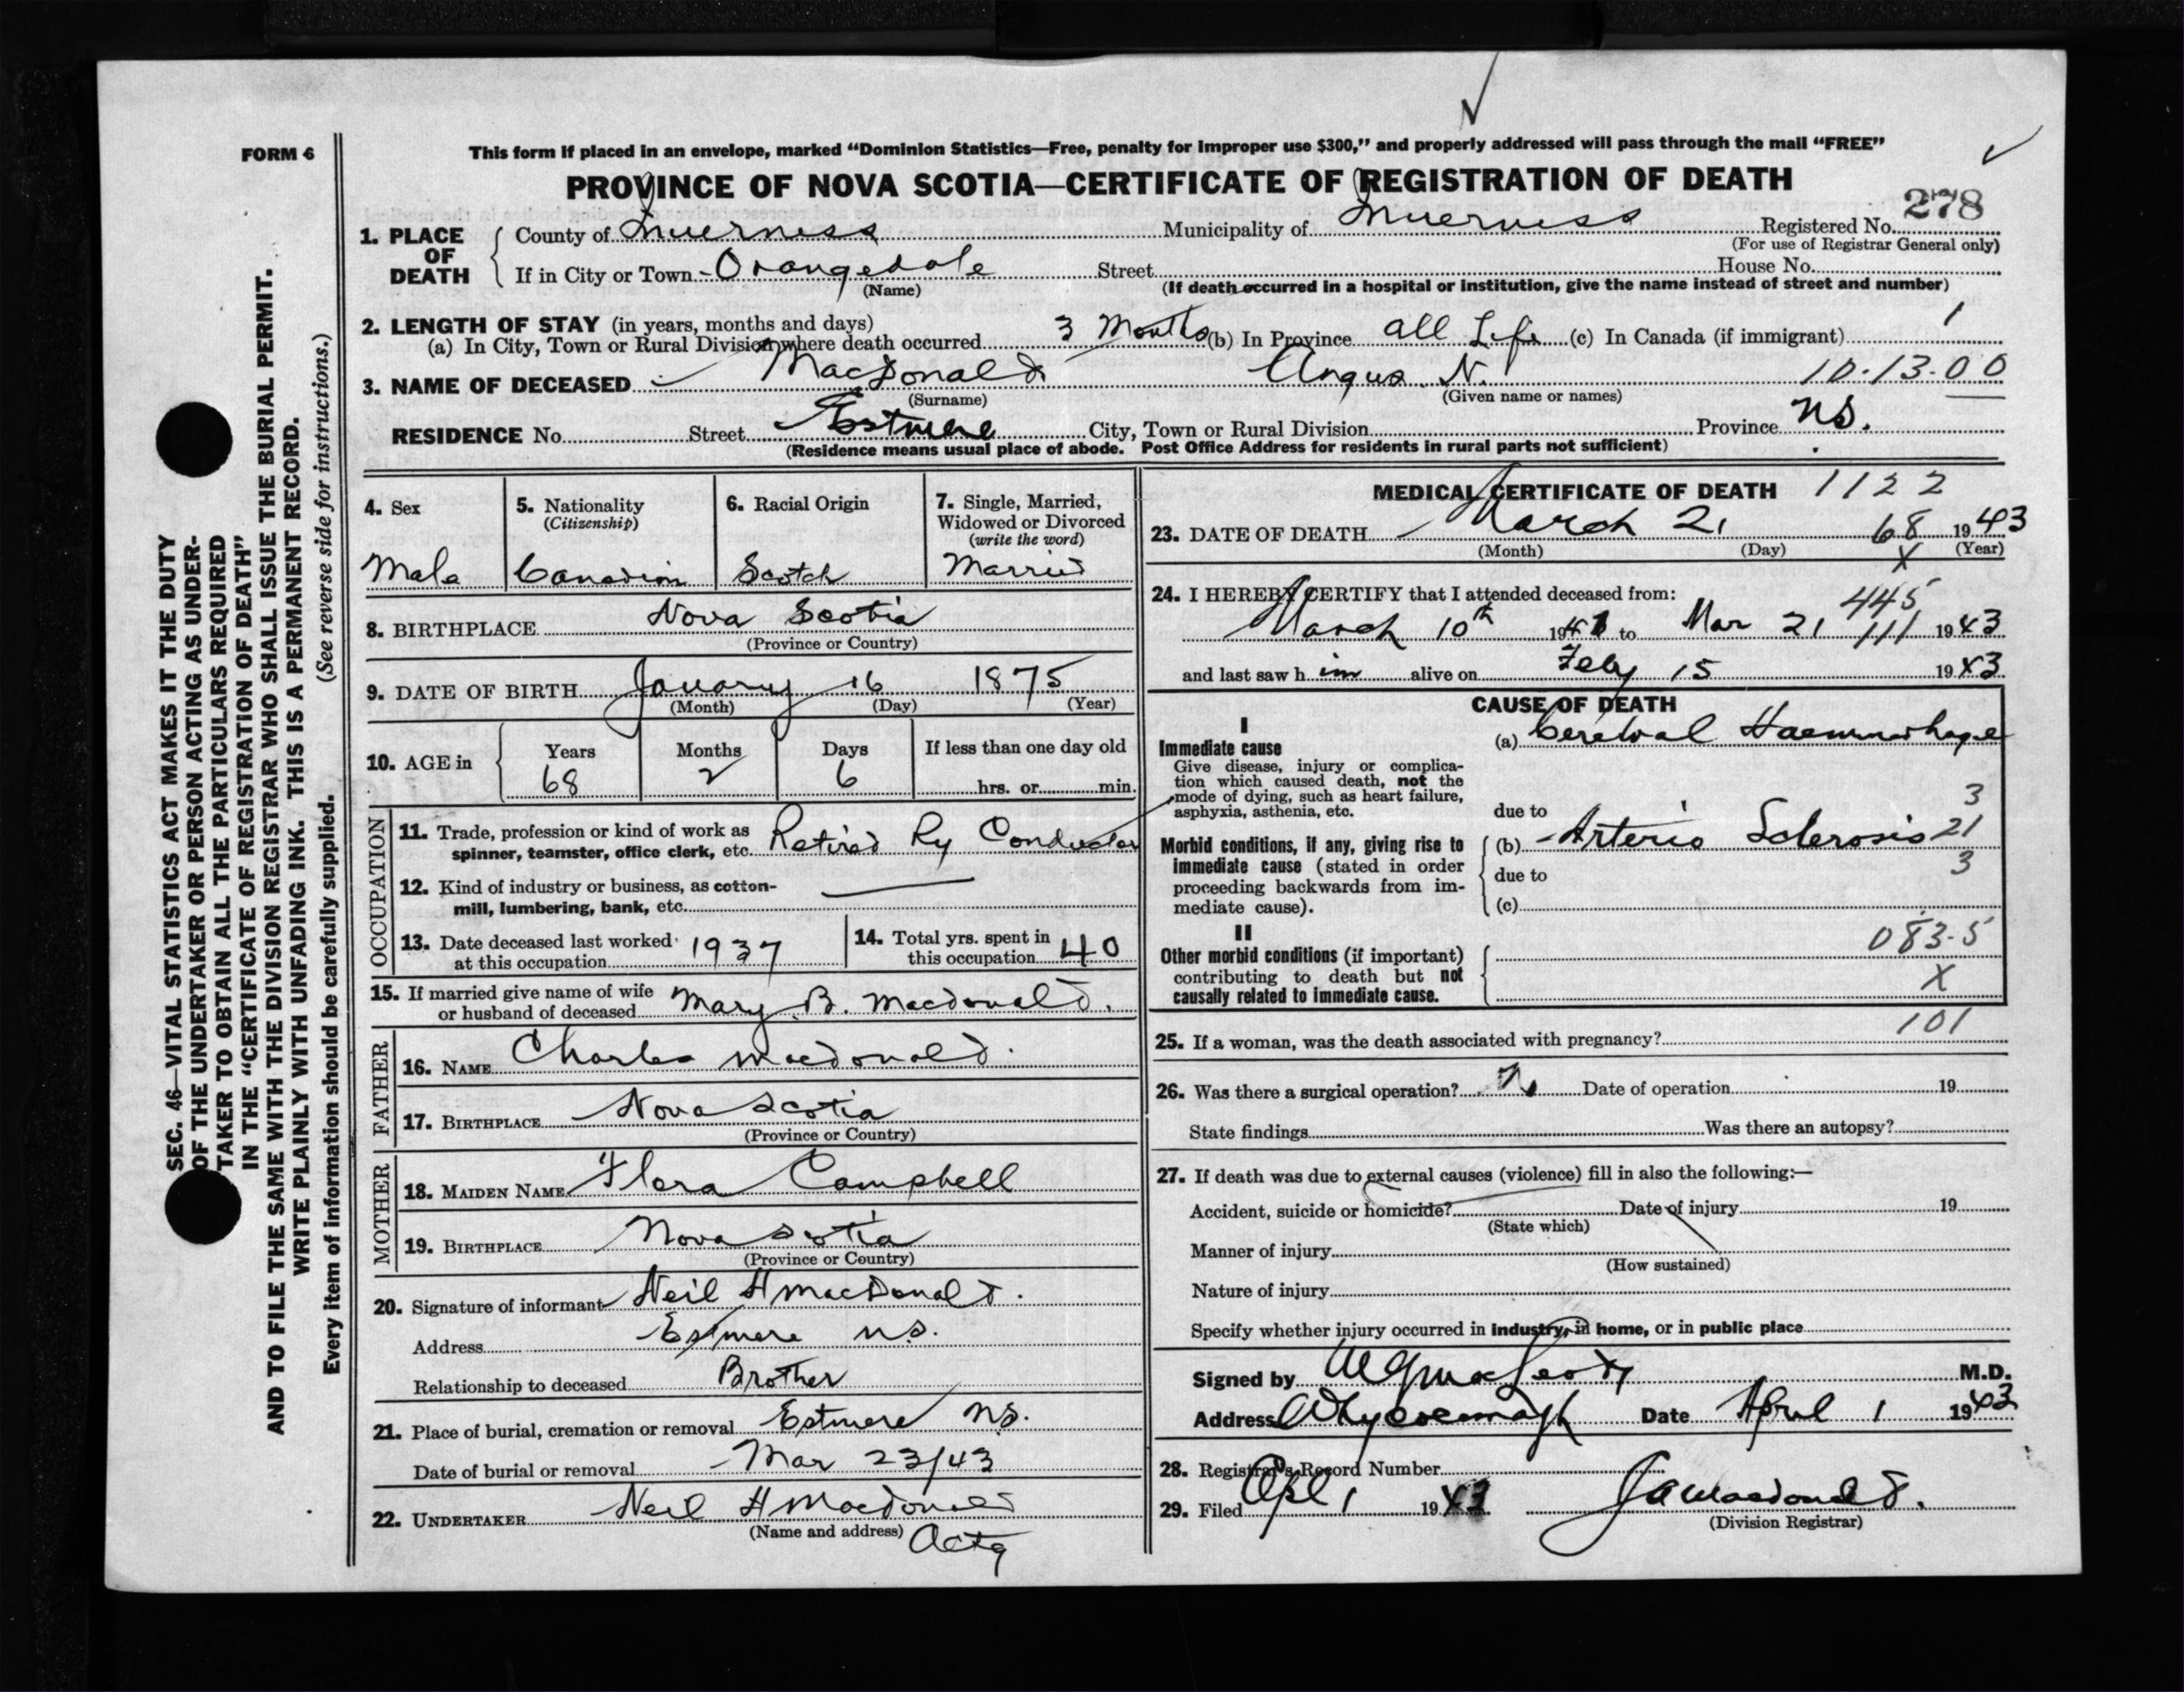 FORM 6
This form if placed in an envelope, marked “Dominion Statistics—Free, penalty for improper use $300,” and properly addressed will pass through the mail “FREE”
PROVINCE OF NOVA SCOTIA—CERTIFICATE OF REGISTRATION OF DEATH
278
1. PLACE OF DEATH County of Inverness Municipality of Inverness Registered No.
(For use of Registrar General only)
If in City or Town Orangedale Street House No.
(Name) (If death occurred in a hospital or institution, give the name instead of street and number)
2. LENGTH OF STAY (in years, months and days)
(a) In City, Town or Rural Division where death occurred 3 Months (b) In Province all Life (c) In Canada (if immigrant) 1
3. NAME OF DECEASED MacDonald Angus N. 10-13-00
(Surname) (Given name or names)
RESIDENCE No. Street Estmere City, Town or Rural Division Province NS.
(Residence means usual place of abode. Post Office Address for residents in rural parts not sufficient)
4. Sex 5. Nationality 6. Racial Origin 7. Single, Married,
(Citizenship) Widowed or Divorced
(write the word)
Male Canadian Scotch Married
8. BIRTHPLACE Nova Scotia
(Province or Country)
9. DATE OF BIRTH January 16 1875
(Month) (Day) (Year)
10. AGE in Years Months Days If less than one day old
68 2 6 hrs. or min.
OCCUPATION
11. Trade, profession or kind of work as
spinner, teamster, office clerk, etc. Retired Ry Conductor
12. Kind of industry or business, as cotton-
mill, lumbering, bank, etc.
13. Date deceased last worked 14. Total yrs. spent in
at this occupation 1937 this occupation 40
15. If married give name of wife
or husband of deceased Mary B. Macdonald.
FATHER
16. NAME Charles Macdonald.
17. BIRTHPLACE Nova Scotia
(Province or Country)
MOTHER
18. MAIDEN NAME Flora Campbell
19. BIRTHPLACE Nova Scotia
(Province or Country)
20. Signature of informant Neil H MacDonald.
Address Estmere N.S.
Relationship to deceased Brother
21. Place of burial, cremation or removal Estmere NS.
Date of burial or removal Mar 23/43
22. UNDERTAKER Neil H Macdonald
(Name and address) Actg
MEDICAL CERTIFICATE OF DEATH 1122
23. DATE OF DEATH March 21 68 1943
(Month) (Day) X (Year)
24. I HEREBY CERTIFY that I attended deceased from: 445
March 10th 19 to Mar 21 111 1943
and last saw him alive on Feby 15 1943
CAUSE OF DEATH
I
Immediate cause (a) Cerebral Haemorrhage
Give disease, injury or complica-
tion which caused death, not the
mode of dying, such as heart failure, 3
asphyxia, asthenia, etc. due to
Morbid conditions, if any, giving rise to (b) Arterio Sclerosis 21
immediate cause (stated in order 3
proceeding backwards from im- due to
mediate cause). (c)
II 083-5
Other morbid conditions (if important)
contributing to death but not X
causally related to immediate cause.
101
25. If a woman, was the death associated with pregnancy?
26. Was there a surgical operation? No Date of operation 19
State findings Was there an autopsy?
27. If death was due to external causes (violence) fill in also the following:—
Accident, suicide or homicide? Date of injury 19
(State which)
Manner of injury
(How sustained)
Nature of injury
Specify whether injury occurred in industry, in home, or in public place
Signed by M.D.
Address Whycocomagh Date April 1 1943
28. Registrar's Record Number
29. Filed Apl 1 1943 J A Macdonald.
(Division Registrar)
SEC. 46—VITAL STATISTICS ACT MAKES IT THE DUTY
OF THE UNDERTAKER OR PERSON ACTING AS UNDER-
TAKER TO OBTAIN ALL THE PARTICULARS REQUIRED
IN THE “CERTIFICATE OF REGISTRATION OF DEATH”
AND TO FILE THE SAME WITH THE DIVISION REGISTRAR WHO SHALL ISSUE THE BURIAL PERMIT.
WRITE PLAINLY WITH UNFADING INK. THIS IS A PERMANENT RECORD.
Every item of information should be carefully supplied. (See reverse side for instructions.)